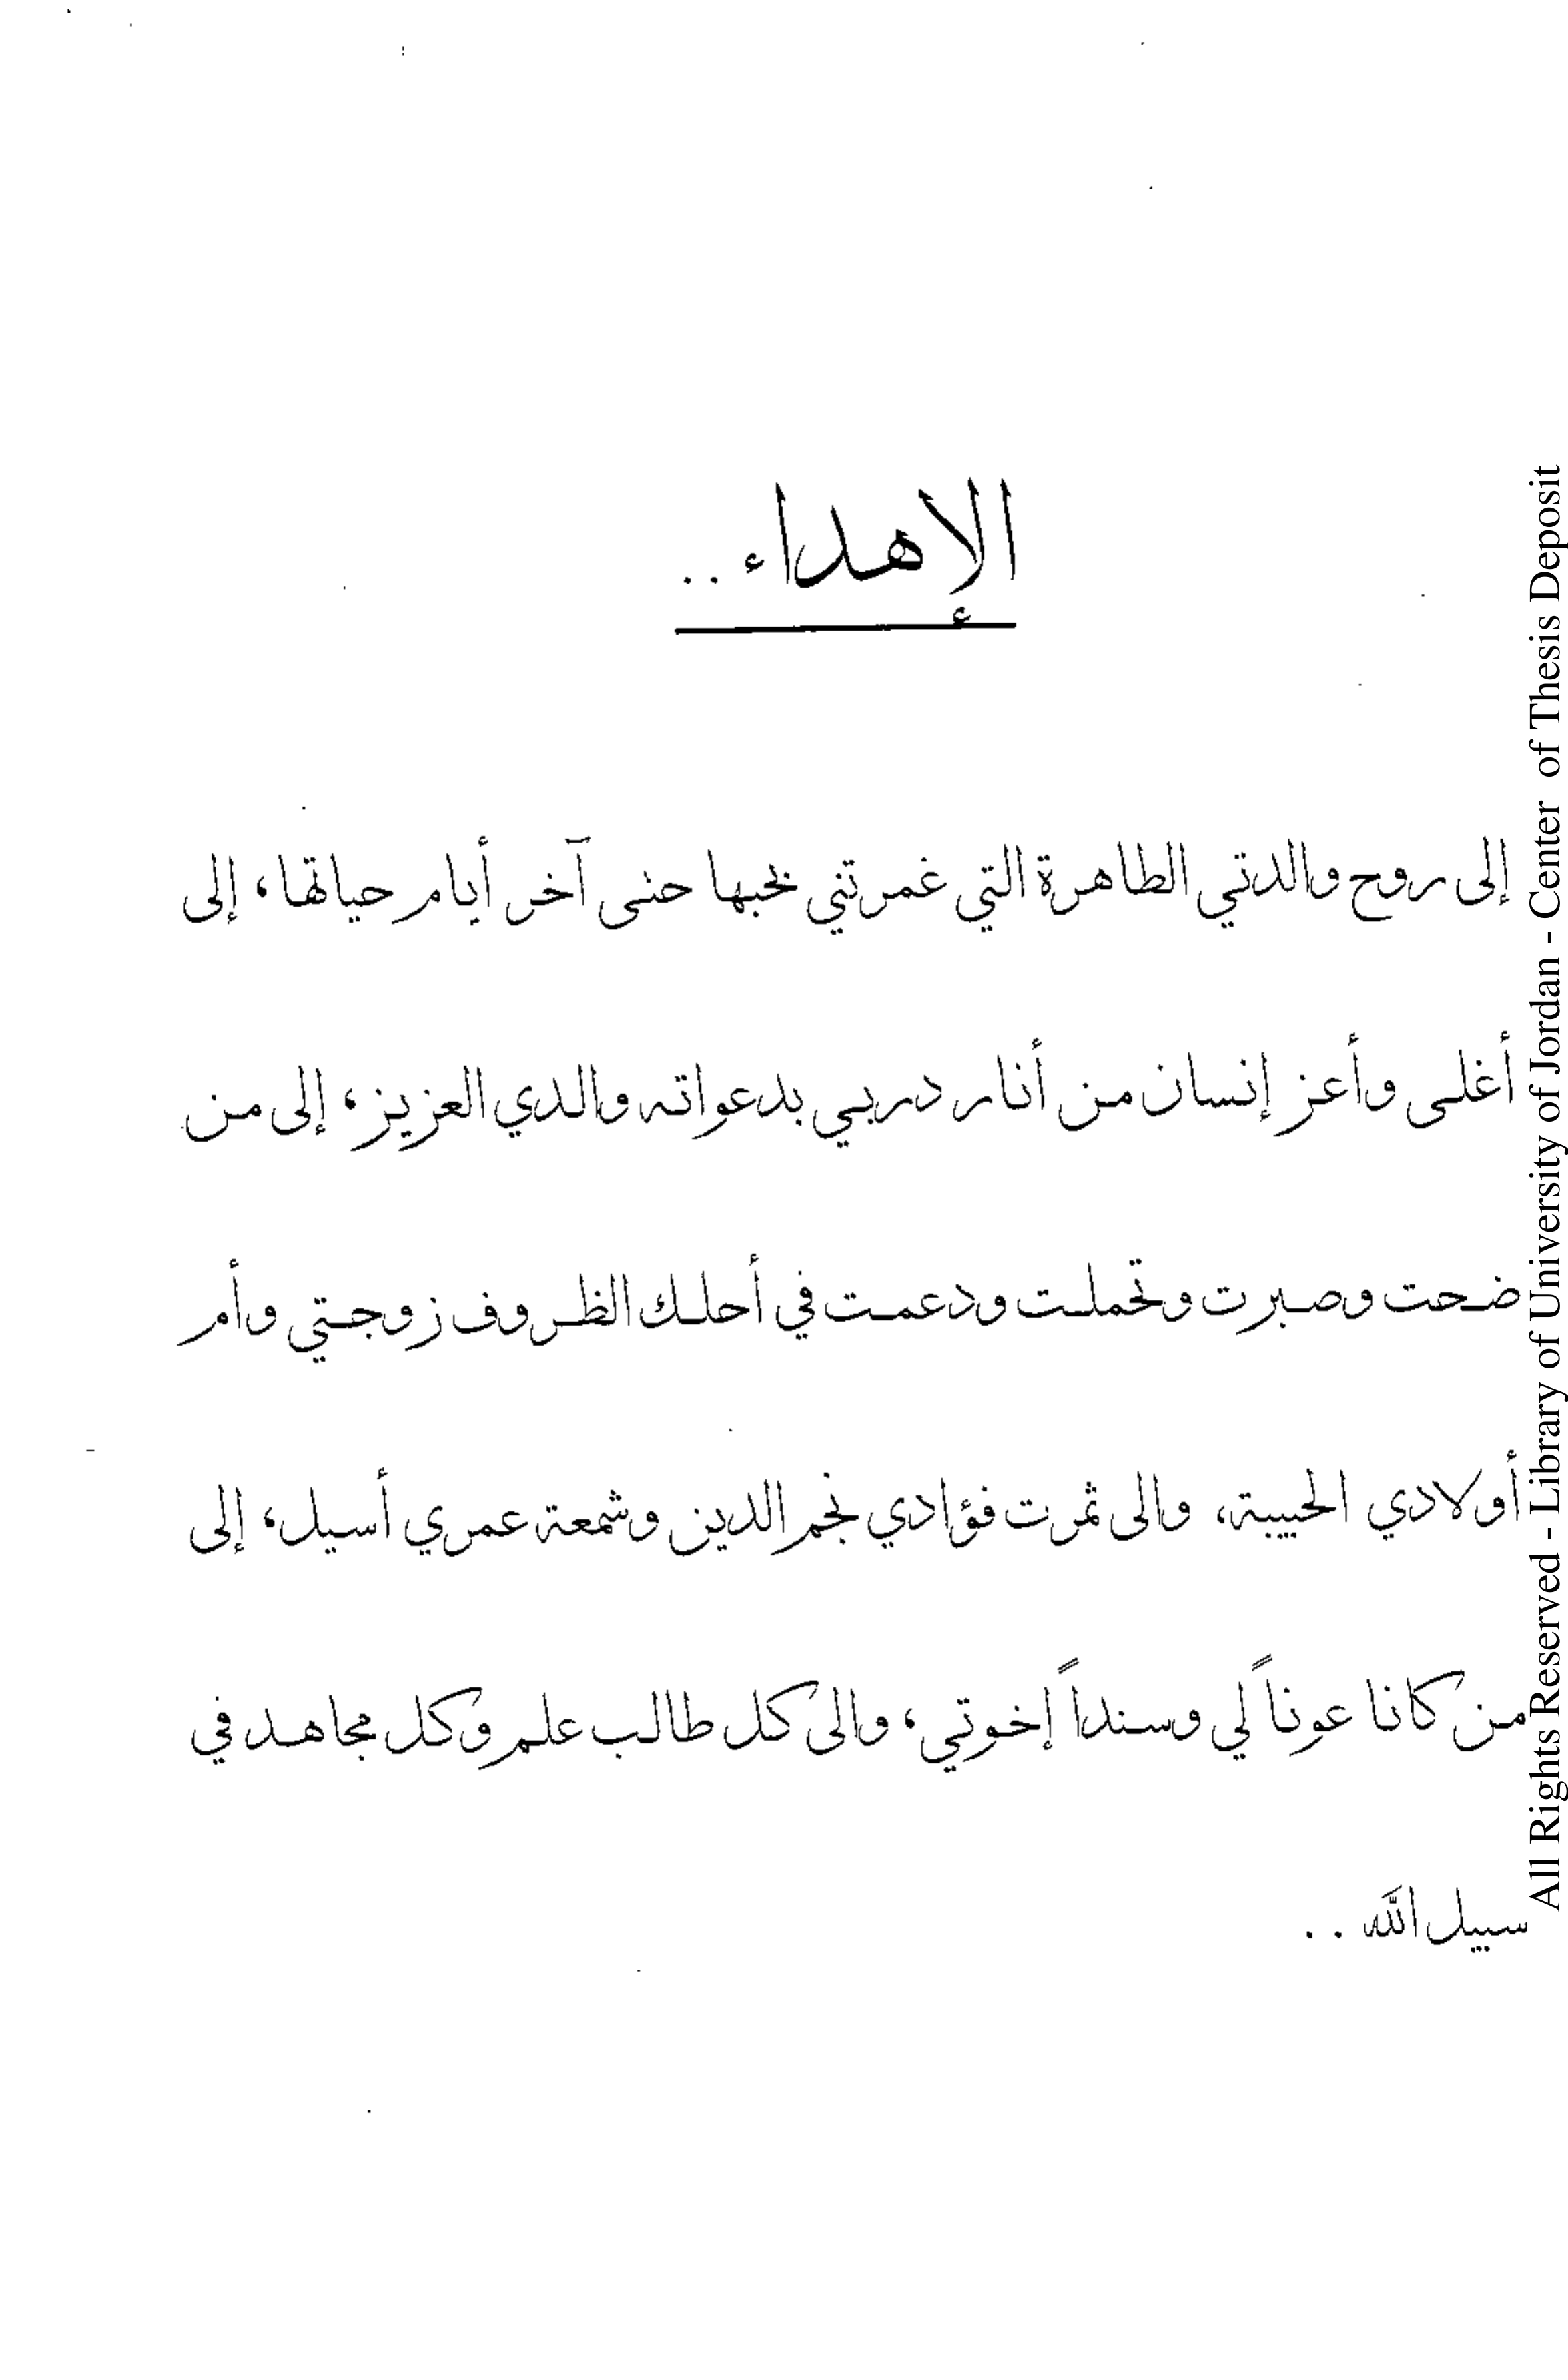 الإهداء ..
إلى روح والدتي الطاهرة التي غمرتني بحبها حتى آخر أيام حياتها، إلى
أغلى وأعز إنسان من أنار دربي بدعواته والدي العزيز، إلى من
ضحت وصبرت وتحملت ودعمت في أحلك الظروف زوجتي وأم
أولادي الحبيبة، والى ثمرت فؤادي نجم الدين وشمعة عمري أسيل، إلى
من كانا عوناً لي وسنداً إخوتي، والى كل طالب علم وكل مجاهد في
سبيل الله ..
All Rights Reserved - Library of University of Jordan - Center of Thesis Deposit